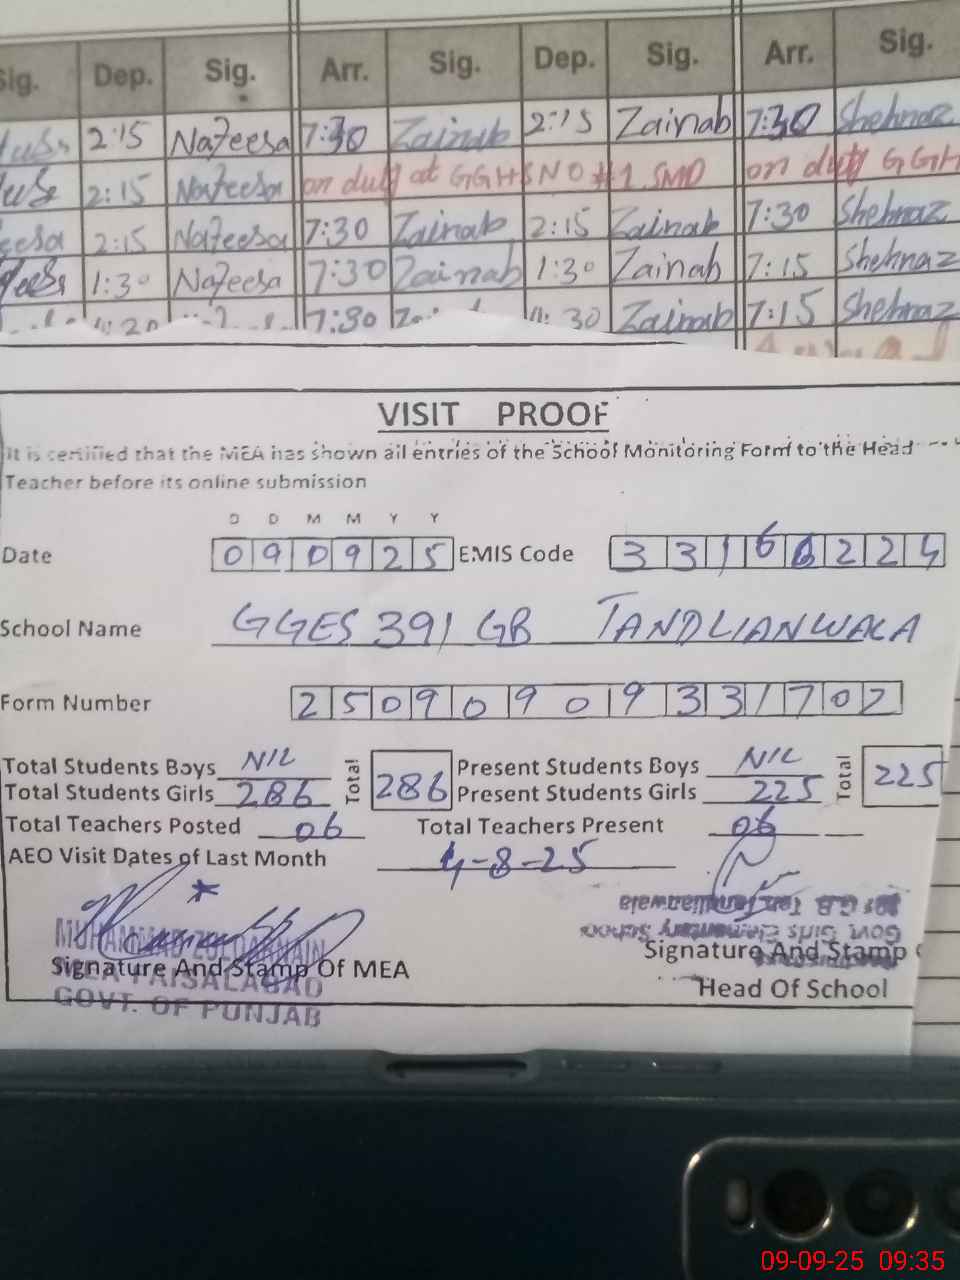 Sig. Dep. Sig. Arr. Sig. Dep. Sig. Arr. Sig.
2:15 Nafeesa 7:30 Zainab 2:15 Zainab 7:30 Shehnaz
2:15 Nafeesa on duty at GGHSNO #1 SMD on duty GGH
2:15 Nafeesa 7:30 Zainab 2:15 Zainab 7:30 Shehnaz
1:30 Nafeesa 7:30 Zainab 1:30 Zainab 7:15 Shehnaz
7:30 30 Zainab 7:15 Shehnaz
VISIT PROOF
It is certified that the MEA has shown all entries of the School Monitoring Form to the Head
Teacher before its online submission
D D M M Y Y
Date 090925 EMIS Code 33166224
School Name GGES 391 GB TANDLIANWALA
Form Number 25090909331702
Total Students Boys NIL Total 286 Present Students Boys NIL Total 225
Total Students Girls 286 Present Students Girls 225
Total Teachers Posted 06 Total Teachers Present 06
AEO Visit Dates of Last Month 4-8-25
MUHAMMAD ZULQARNAIN
Signature And Stamp Of MEA
MEA FAISALABAD
GOVT. OF PUNJAB
Govt. Girls Elementary School
391 G.B. Tandlianwala
Signature And Stamp
Head Of School
09-09-25 09:35